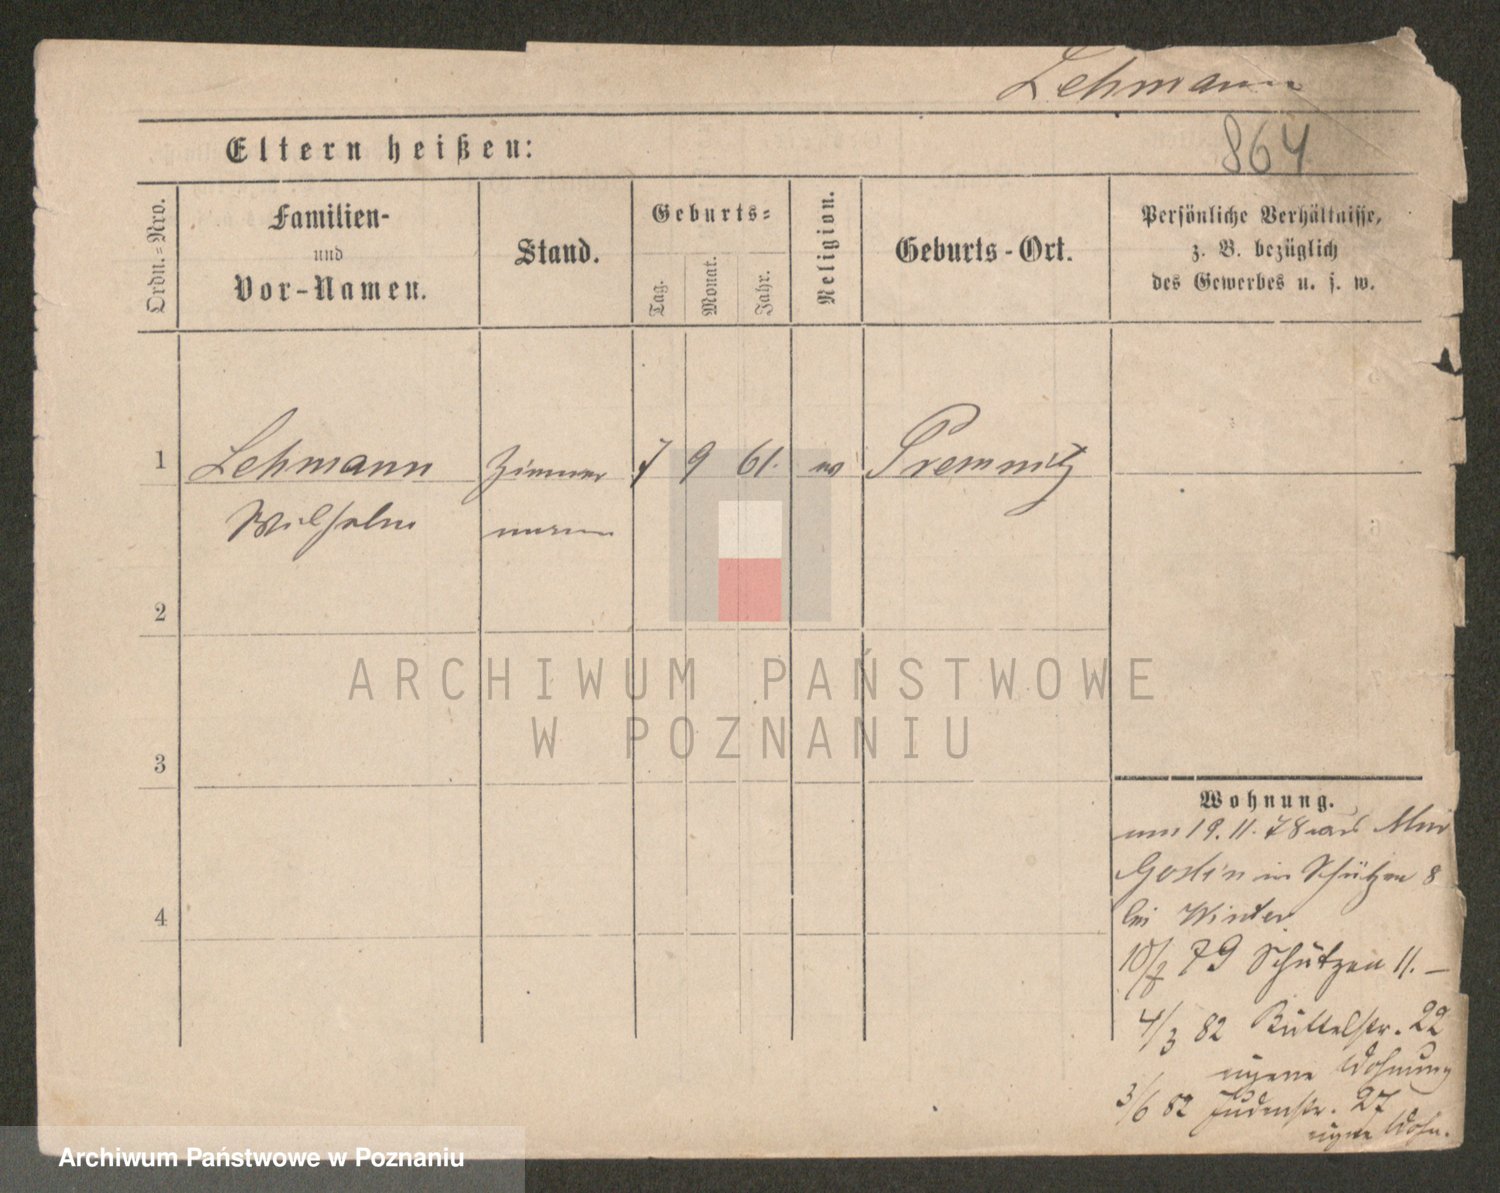 Lehmann
864
Eltern heißen:
Ordn.=Nro.
Familien-
und
Vor-Namen.
Stand.
Geburts=
Tag.
Monat.
Jahr.
Religion.
Geburts-Ort.
Persönliche Verhältnisse,
z. B. bezüglich
des Gewerbes u. s. w.
1 Lehmann Zimmer 7 9 61. Premnitz
Wilhelm mann
2
3
4
ARCHIWUM PAŃSTWOWE
W POZNANIU
Wohnung.
19. 11. 78 aus
Goslin in Schützen 8
bei Winter
10/8 79 Schützen 11. —
4/3 82 Büttelstr. 22
eigene Wohnung
3/6 82 Judenstr. 27
eigene Wohn.
Archiwum Państwowe w Poznaniu